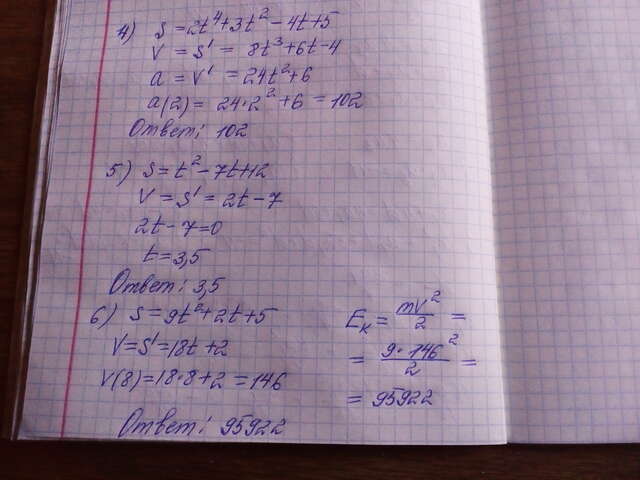 4) S = 2t⁴+3t²-4t+5
V = S' = 8t³+6t-4
a = V' = 24t²+6
a(2) = 24·2²+6 = 102
Ответ: 102
5) S = t²-7t+12
V = S' = 2t-7
2t-7=0
t=3,5
Ответ: 3,5
6) S = 9t²+2t+5
V=S'=18t+2
V(8)=18·8+2=146
Eₖ = mv²/2 =
= 9·146²/2 =
= 95922
Ответ: 95922